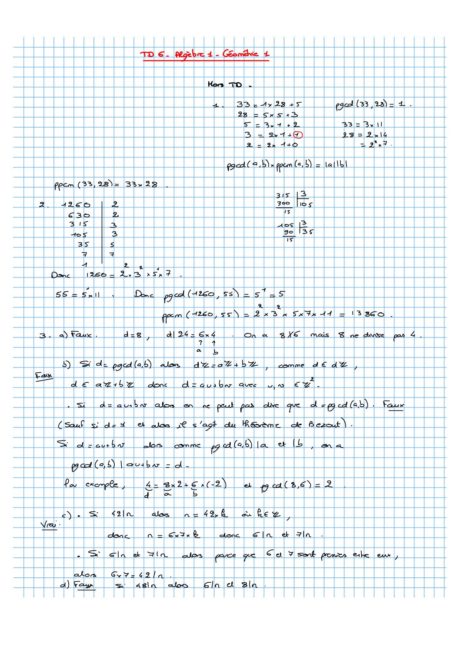 TD 6 - Algèbre 1 - Géométrie 1
Hors TD.
1. 33 = 1 x 28 + 5 pgcd(33, 28) = 1.
28 = 5 x 5 + 3
5 = 3 x 1 + 2 33 = 3 x 11
3 = 2 x 1 + 1 28 = 2 x 14
2 = 2 x 1 + 0 = 2² x 7.
pgcd(a,b) x ppcm(a,b) = |a||b|
ppcm(33, 28) = 33 x 28.
315 | 3
300 | 105
15
105 | 3
90 | 35
15
2. 1260 | 2
630 | 2
315 | 3
105 | 3
35 | 5
7 | 7
1
Donc 1260 = 2² x 3² x 5¹ x 7.
55 = 5¹ x 11. Donc pgcd(1260, 55) = 5¹ = 5
ppcm(1260, 55) = 2² x 3² x 5 x 7 x 11 = 13860.
3. a) Faux. d = 8, d | 24 = 6 x 4 On a 8 ∤ 6 mais 8 ne divise pas 4.
a b
b) Si d = pgcd(a,b) alors dℤ = aℤ + bℤ, comme d ∈ dℤ,
Faux
d ∈ aℤ + bℤ donc d = au + bv avec u, v ∈ ℤ².
. Si d = au + bv alors on ne peut pas dire que d = pgcd(a,b). Faux
(Sauf si d = 1 et alors il s'agit du théorème de Bezout).
Si d = au + bv alors comme pgcd(a,b) | a et | b, on a
pgcd(a,b) | au + bv = d.
Par exemple, 4 = 8 x 2 + 6 x (-2) et pgcd(8,6) = 2
d a b
c) . Si 42|n alors n = 42 x k où k ∈ ℤ,
Vrai.
donc n = 6 x 7 x k donc 6|n et 7|n.
. Si 6|n et 7|n alors parce que 6 et 7 sont premiers entre eux,
alors 6 x 7 = 42 | n.
d) Faux Si 48|n alors 6|n et 8|n.